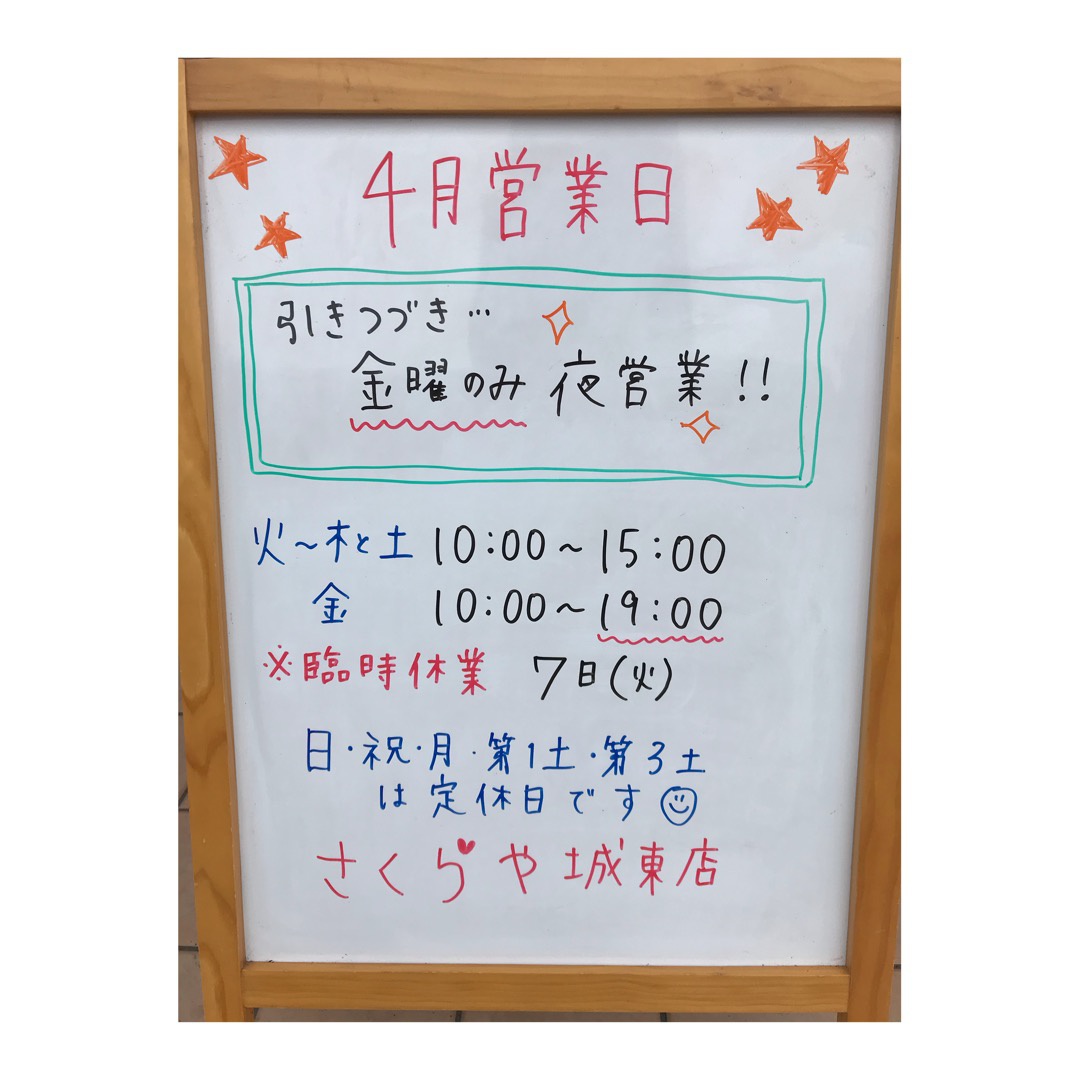 4月営業日
引きつづき…
金曜のみ 夜営業!!
火〜木と土 10:00〜15:00
金 10:00〜19:00
※臨時休業 7日(火)
日・祝・月・第1土・第3土
は定休日です
さくらや城東店